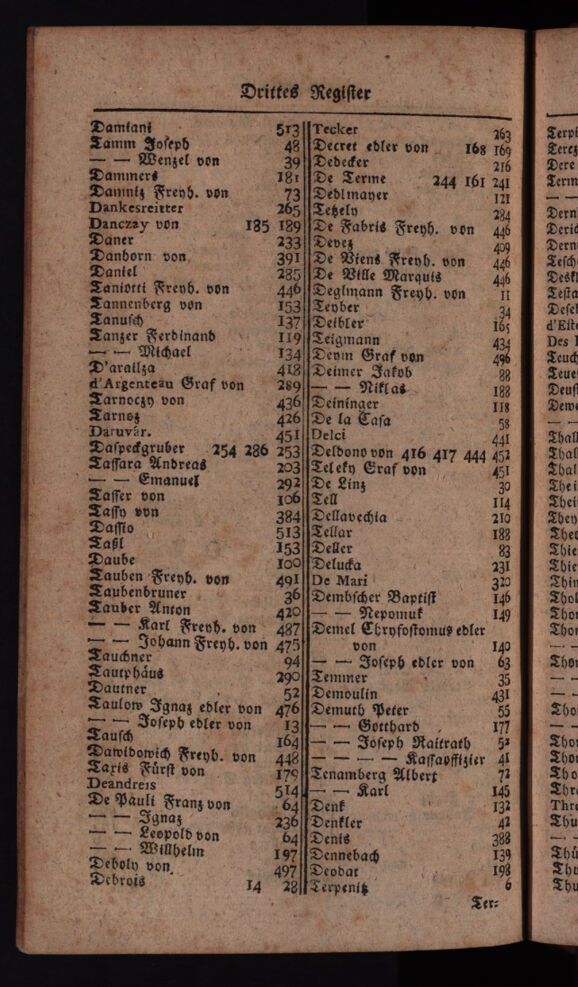 Drittes Register
Damiani 513
Tamm Joseph 48
— — Wenzel von 39
Dammers 181
Damnitz Freyh. von 73
Dankesreitter 265
Danczay von 185 189
Daner 233
Danhorn von 391
Daniel 285
Taniotti Freyh. von 446
Tannenberg von 153
Tanusch 137
Tanzer Ferdinand 119
— — Michael 134
D'arailza 418
d'Argenteau Graf von 289
Tarnoczy von 436
Tarnoz 426
Daruvár. 451
Daspeckgruber 254 286 253
Taffara Andreas 203
— — Emanuel 292
Taffer von 106
Taffy von 384
Daffio 513
Taßl 153
Daube 100
Tauben Freyh. von 491
Taubenbruner 36
Tauber Anton 420
— — Karl Freyh. von 487
— — Johann Freyh. von 475
Tauchner 94
Tautphäus 290
Dautner 52
Taulow Ignaz edler von 476
— — Joseph edler von 13
Tausch 164
Dawidowich Freyh. von 448
Taxis Fürst von 179
Deandreis 514
De Pauli Franz von 64
— — Ignaz 236
— — Leopold von 64
— — Willhelm 197
Deboly von 497
Debrois 14 28
Tecker 263
Decret edler von 168 169
Dedecker 216
De Terme 244 161 241
Dedlmayer 121
Tetzely 284
De Fabris Freyh. von 446
Devez 409
De Viens Freyh. von 446
De Ville Marquis 446
Deglmann Freyh. von 11
Teyber 34
Deibler 165
Teigmann 434
Deym Graf von 496
Deimer Jakob 88
— — Niklas 188
Deininger 118
De la Casa 58
Delci 441
Deldono von 416 417 444 452
Teleky Graf von 451
De Linz 30
Tell 114
Dellavechia 210
Tellar 188
Deller 83
Delucka 231
De Mari 320
Dembscher Baptist 146
— — Nepomuk 149
Demel Chrysostomus edler
von 140
— — Joseph edler von 63
Temmer 35
Demoulin 431
Demuth Peter 55
— — Gotthard 177
— — Joseph Raitrath 52
— — — — Kassaoffizier 41
Tenamberg Albert 72
— — Karl 145
Denk 132
Denkler 42
Denis 388
Dennebach 139
Deodat 198
Terpenitz 6
Ter-